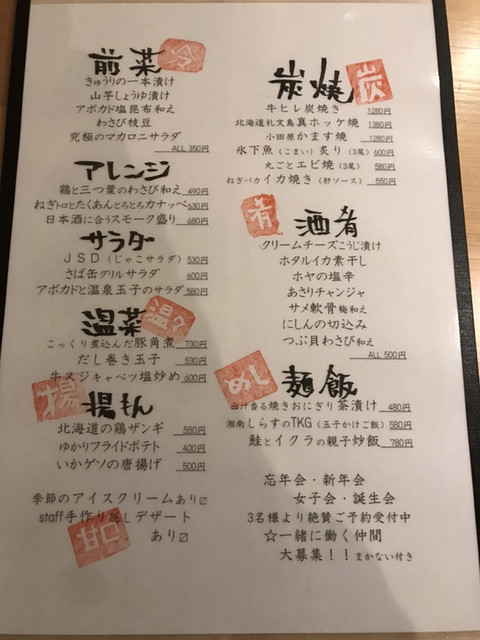 前菜 冷
きゅうりの一本漬け
山芋しょうゆ漬け
アボカド塩昆布和え
わさび枝豆
究極のマカロニサラダ
ALL 350円
アレンジ
鶏と三つ葉のわさび和え 490円
ねぎトロとたくあんとろとろカナッペ 630円
日本酒に合うスモーク盛り 680円
サラダ
JSD(じゃこサラダ) 530円
さば缶グリルサラダ 600円
アボカドと温泉玉子のサラダ 580円
温菜 温々
こっくり煮込んだ豚角煮 730円
だし巻き玉子 530円
牛スジキャベツ塩炒め 600円
揚 揚もん
北海道の鶏ザンギ 580円
ゆかりフライドポテト 400円
いかゲソの唐揚げ 500円
季節のアイスクリームあり〼
staff手作り隠しデザート
あり〼
甘
炭焼 炭
牛ヒレ炭焼き 1280円
北海道礼文島真ホッケ焼 1380円
小田原かます焼 1280円
氷下魚(こまい)炙り(3尾) 600円
丸ごとエビ焼(3尾) 580円
ねぎバカイカ焼き(肝ソース) 550円
肴 酒肴
クリームチーズこうじ漬け
ホタルイカ素干し
ホヤの塩辛
あさりチャンジャ
サメ軟骨梅和え
にしんの切込み
つぶ貝わさび和え
ALL 500円
めし 麺飯
出汁香る焼きおにぎり茶漬け 480円
湘南しらすのTKG(玉子かけご飯) 580円
鮭とイクラの親子炒飯 780円
忘年会・新年会
女子会・誕生会
3名様より絶賛ご予約受付中
☆一緒に働く仲間
大募集!!まかない付き